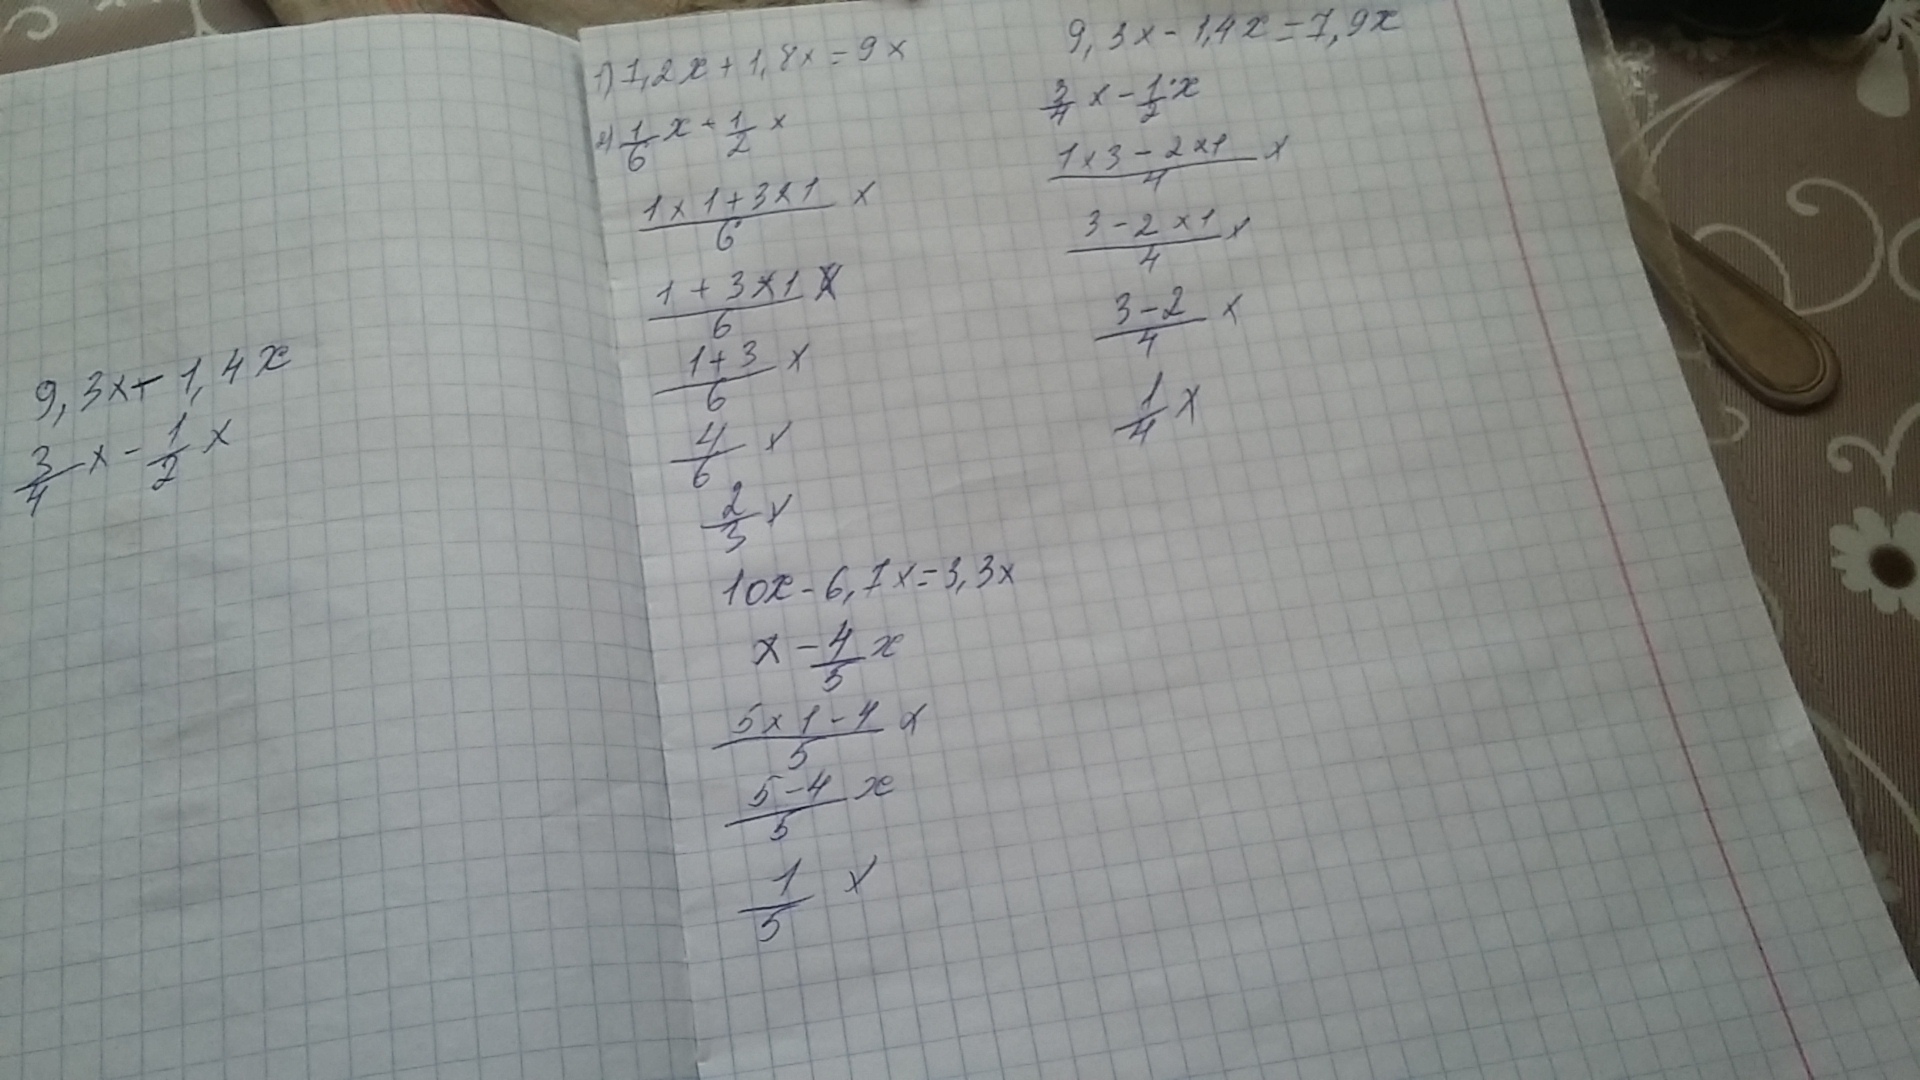 9,3x-1,4x
3/4 x - 1/2 x
1) 7,2x+1,8x=9x
1/6 x + 1/2 x
(1 x 1 + 3 x 1)/6 x
(1 + 3 x 1)/6 x
(1+3)/6 x
4/6 x
2/3 x
10x-6,7x=3,3x
x - 4/5 x
(5 x 1 - 4)/5 x
(5-4)/5 x
1/5 x
9,3x-1,4x=7,9x
3/4 x - 1/2 x
(1 x 3 - 2 x 1)/4 x
(3 - 2 x 1)/4 x
(3-2)/4 x
1/4 x